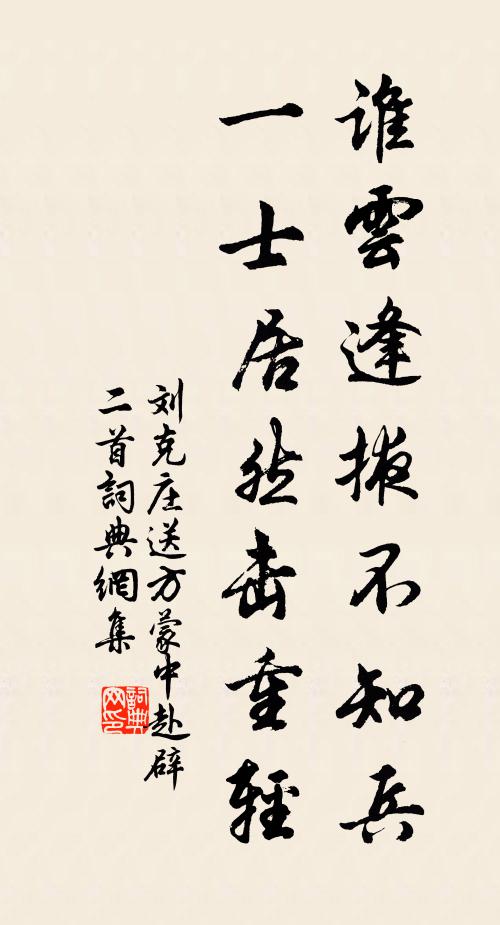 誰雲逢掖不知兵
一士居然击重輕
刘克庄送方蒙中赴辟
二首詞典網集
詞典網印